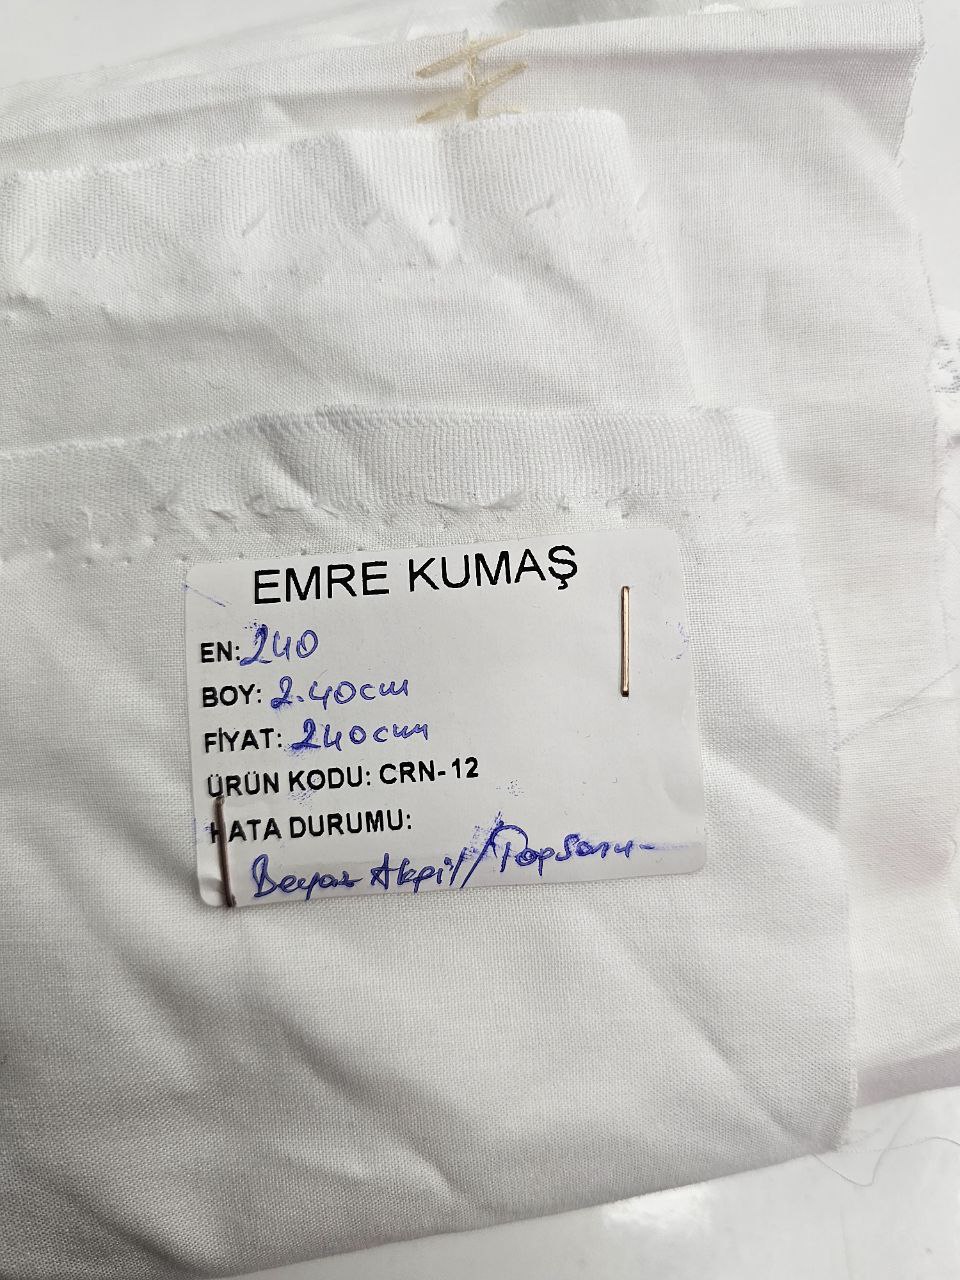 EMRE KUMAŞ
EN: 240
BOY: 2.40cm
FİYAT: 240cm
ÜRÜN KODU: CRN-12
HATA DURUMU:
Beyaz Akpil/Topsonu-